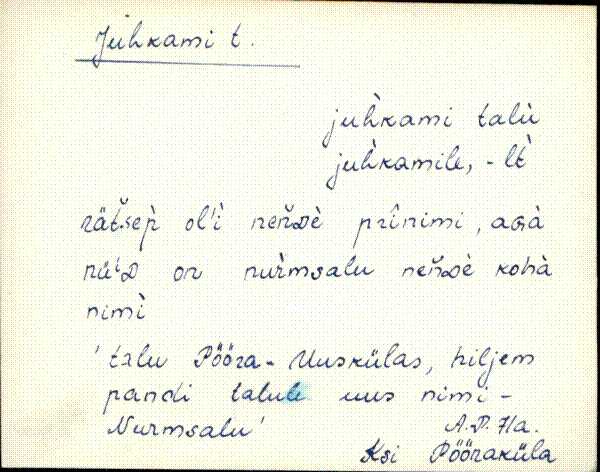 Juhkami t.
juh̀kami talù
juh̀kamile, -lt̀
rät̆.sep̀ ol'ì nen̆Dè prînimi, aGà
nü'D on nur̀msalu nen̆Dè kohà
nimì
'talu Pööra-Uuskülas, hiljem
pandi talule uus nimi -
Nurmsalu'
A.P. Ha.
Ksi Pööraküla